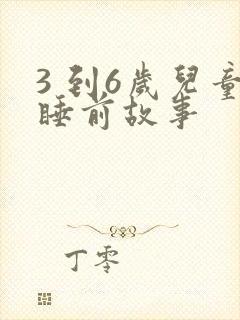 3到6歲兒童
睡前故事
丁零